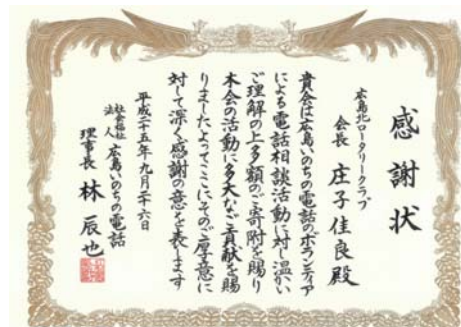 感謝状
広島北ロータリークラブ
会長 庄子佳良殿
貴会は広島いのちの電話のボランティア
による電話相談活動に対し温かい
ご理解の上多額のご寄附を賜り
本会の活動に多大なご貢献を賜
りましたよってここにそのご厚意に
対して深く感謝の意を表します
平成二十五年九月二十六日
社会福祉法人 広島いのちの電話
理事長 林辰也